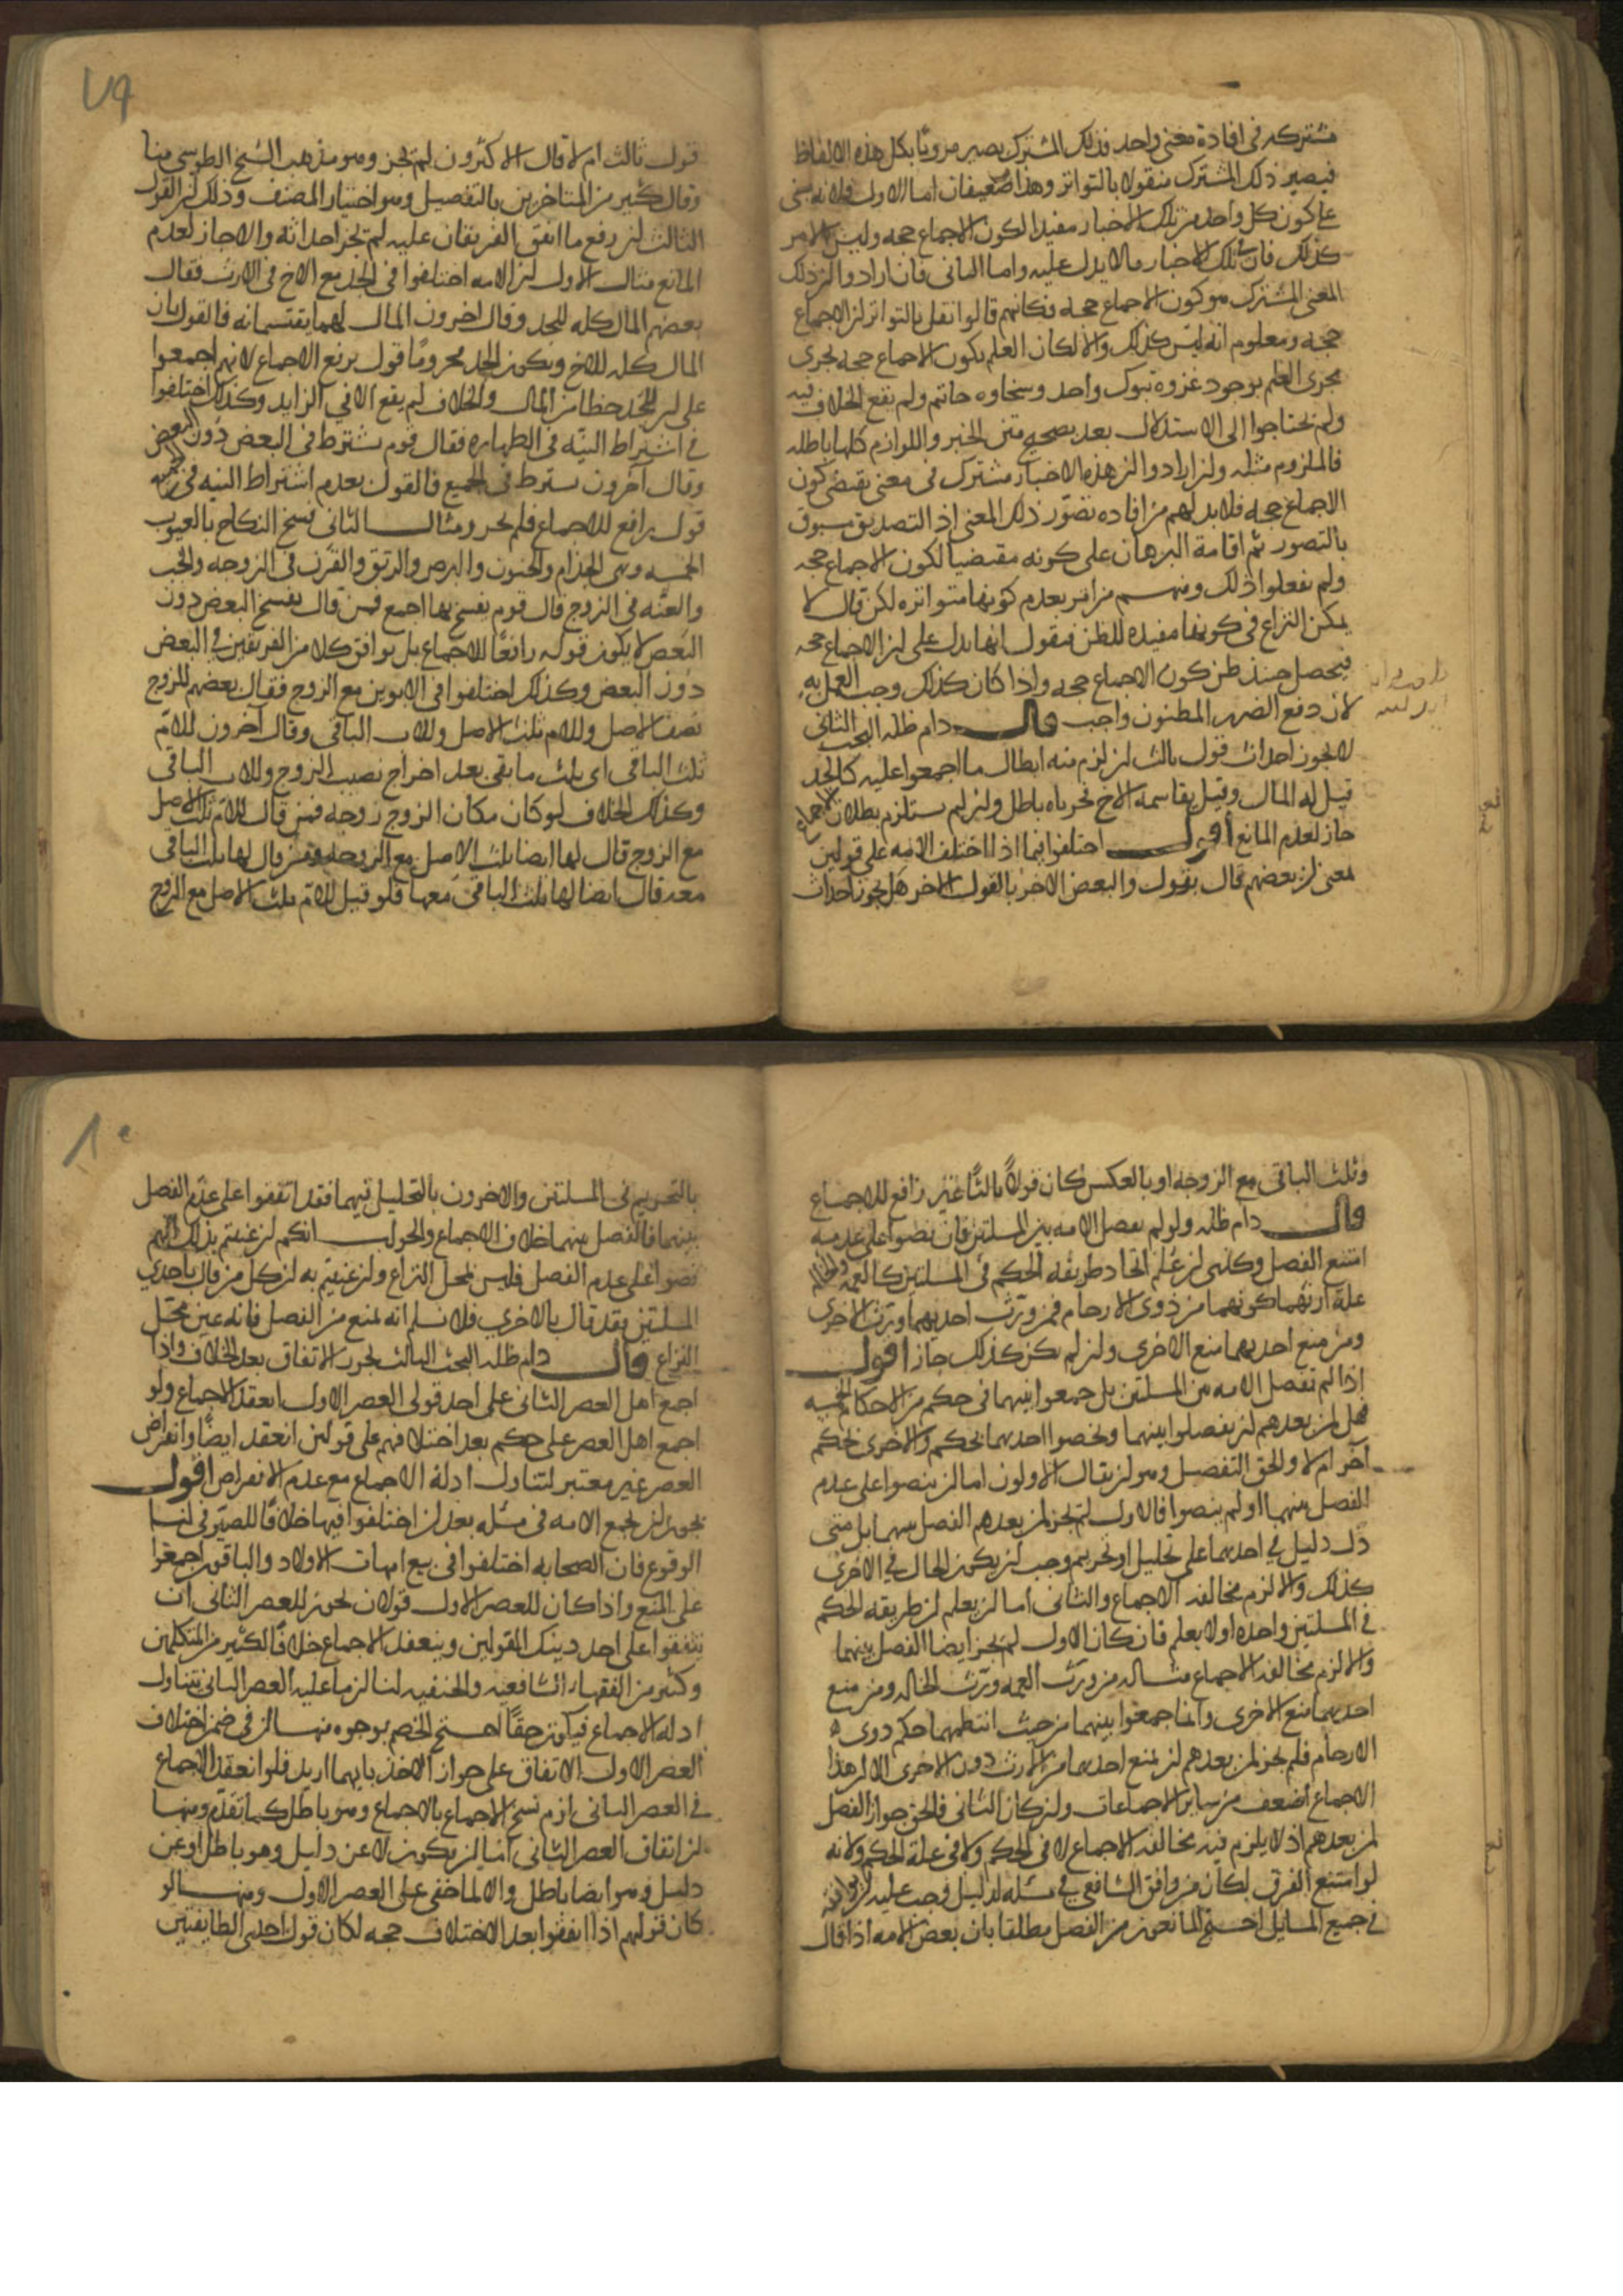 مشتركه في افادة معنى واحد فذلك المشترك يصير مرويًا بكل هذه الالفاظ
فيصير ذلك المشترك منقولا بالتواتر وهذا ضعيفان اما الاول فلانه يبنى
على كون كل واحد من تلك الاخبار مفيدا لكون الاجماع حجه وليس الامر
كذلك فان تلك الاخبار مالا يدل عليه واما الثانى فان ارادوا ان ذلك
المعنى المشترك هو كون الاجماع حجه فكانهم قالوا نقل بالتواتر ان الاجماع
حجه ومعلوم انه ليس كذلك والا لكان العلم بكون الاجماع حجه يجرى
مجرى العلم بوجود غزوة تبوك واحد وسخاوه حاتم ولم يقع الخلاف فيه
ولم يحتاجوا الى الاستدلال بعد تصحيح متن الخبر واللوازم كلها باطله
فالملزوم مثله وان ارادوا ان هذه الاخبار مشترك في معنى يقتضى كون
الاجماع حجه فلا بد لهم من افاده تصور ذلك المعنى اذ التصديق مسبوق
بالتصور ثم اقامة البرهان على كونه مقتضيا لكون الاجماع حجه
ولم يفعلوا ذلك ومنهم من اقر بعدم كونها متواتره لكن قال لا
يمكن النزاع في كونها مفيده للظن فنقول انها تدل على ان الاجماع حجه
فيحصل حينئذ ظن كون الاجماع حجه واذا كان كذلك وجب العمل به
لان دفع الضرر المظنون واجب قال دام ظله البحث الثانى
لا يجوز احداث قول ثالث ان لزم منه ابطال ما اجمعوا عليه كالجد
قيل له المال وقيل يقاسمه الاخ فحرمانه باطل وان لم يستلزم بطلان الاجماع
جاز لعدم المانع اقول اختلفوا فيما اذا اختلف الامه على قولين
بمعنى ان بعضهم قال بقول والبعض الاخر بالقول الاخر هل يجوز احداث
٧٩
قول ثالث ام لا قال الاكثرون لم يجز وهو مذهب الشيخ الطوسي منا
وقال كثير من المتاخرين بالتفصيل وهو اختيار المصنف وذلك ان القول
الثالث ان رفع ما اتفق الفريقان عليه لم يجز احداثه والا جاز لعدم
المانع مثال الاول ان الامه اختلفوا في الجد مع الاخ في الارث فقال
بعضهم المال كله للجد وقال اخرون المال لهما يقتسمانه فالقول بان
المال كله للاخ ويكون الجد محرومًا قول يرفع الاجماع لانهم اجمعوا
على ان للجد حظا من المال والخلاف لم يقع الا في الزايد وكذلك اختلفوا
في اشتراط النيه في الطهاره فقال قوم يشترط في البعض دون البعض
وقال آخرون يشترط في الجميع فالقول بعدم اشتراط النيه في
قول رافع للاجماع فلم يجز ومثال الثانى فسخ النكاح بالعيوب
الخمسه وهى الجذام والجنون والبرص والرتق والقرن في الزوجه والجب
والعنه في الزوج قال قوم يفسخ بها اجمع فمن قال يفسخ البعض دون
البعض لا يكون قوله رافعًا للاجماع بل يوافق كلا من الفريقين في البعض
دون البعض وكذلك اختلفوا في الابوين مع الزوج فقال بعضهم للزوج
نصف الاصل وللام ثلث الاصل وللاب الباقي وقال آخرون للام
ثلث الباقي اى ثلث ما بقي بعد اخراج نصيب الزوج وللاب الباقي
وكذلك الخلاف لو كان مكان الزوج زوجه فمن قال للام ثلث الاصل
مع الزوج قال لها ايضا ثلث الاصل مع الزوجه ومن قال لها ثلث الباقي
معه قال ايضا لها ثلث الباقي معها فلو قيل للام ثلث الاصل مع الزوج
وثلث الباقي مع الزوجه او بالعكس كان قولًا ثالثًا غير رافع للاجماع
قال دام ظله ولو لم يفصل الامه بين المسلتين فان نصوا على عدمه
امتنع الفصل وكذا ان علم اتحاد طريقه الحكم في المسلتين كالعمه والخاله
علة ارثهما كونهما من ذوى الارحام فمن ورث احديهما ورث الاخرى
ومن منع احديهما منع الاخرى وان لم يكن كذلك جاز اقول
اذا لم تفصل الامه بين المسلتين بل جمعوا بينهما في حكم من الاحكام الخمسه
فهل لمن بعدهم ان يفصلوا بينهما ويخصوا احديهما بحكم والاخرى بحكم
آخر ام لا والحق التفصيل وهو ان يقال الاولون اما ان ينصوا على عدم
الفصل بينهما او لم ينصوا فالاول لم يجز لمن بعدهم الفصل بينهما بل متى
دل دليل في احديهما على تحليل او تحريم وجب ان يكون الحال في الاخرى
كذلك والا لزم مخالفه الاجماع والثانى اما ان يعلم ان طريقه الحكم
في المسلتين واحده او لا يعلم فان كان الاول لم يجز ايضا الفصل بينهما
والا لزم مخالفه الاجماع مثاله من ورث العمه ورث الخاله ومن منع
احديهما منع الاخرى وانما جمعوا بينهما من حيث انتظمهما حكم ذوى
الارحام فلم يجز لمن بعدهم ان يمنع احديهما من الارث دون الاخرى الا ان هذا
الاجماع اضعف من ساير الاجماعات وان كان الثانى فالحق جواز الفصل
لمن بعدهم اذ لا يلزم فيه مخالفه الاجماع لا في الحكم ولا في علة الحكم ولانه
لو امتنع الفرق لكان من وافق الشافعي في مسله لدليل وجب عليه ان يوافقه
في جميع المسايل احتج المانعون من الفصل مطلقا بان بعض الامه اذا قال
٨٠
بالتحريم في المسلتين والاخرون بالتحليل فيهما فقد اتفقوا على عدم الفصل
بينهما فالفصل بينهما خلاف الاجماع والجواب انكم ان عنيتم بذلك انهم
نصوا على عدم الفصل فليس محل النزاع وان عنيتم به ان كل من قال باحدي
المسلتين فقد قال بالاخري فلا نسلم انه يمنع من الفصل فانه عين محل
النزاع قال دام ظله البحث الثالث يجوز الاتفاق بعد الخلاف واذا
اجمع اهل العصر الثانى على احد قولى العصر الاول انعقد الاجماع ولو
اجمع اهل العصر على حكم بعد اختلافهم على قولين انعقد ايضًا وانقراض
العصر غير معتبر لتناول ادلة الاجماع مع عدم الانقراض اقول
يجوز ان يجمع الامه في مسله بعد ان اختلفوا فيها خلافًا للصيرفي لنا
الوقوع فان الصحابه اختلفوا في بيع امهات الاولاد والباقون اجمعوا
على المنع واذا كان للعصر الاول قولان يجوز للعصر الثانى ان
يتفقوا على احد ذينك القولين وينعقد الاجماع خلافًا لكثير من المتكلمين
وكثير من الفقهاء الشافعيه والحنفيه لنا ان ما عليه العصر الثانى يتناوله
ادلة الاجماع فيكون حقًا احتج الخصم بوجوه منها ان في ضمن اختلاف
العصر الاول الاتفاق على جواز الاخذ بايهما اريد فلو انعقد الاجماع
في العصر الثانى لزم نسخ الاجماع بالاجماع وهو باطل كما تقدم ومنها
ان اتفاق العصر الثانى اما ان يكون لا عن دليل وهو باطل او عن
دليل وهو ايضا باطل والا لما خفي على العصر الاول ومنها لو
كان قولهم اذا اتفقوا بعد الاختلاف حجه لكان قول احدى الطايفتين